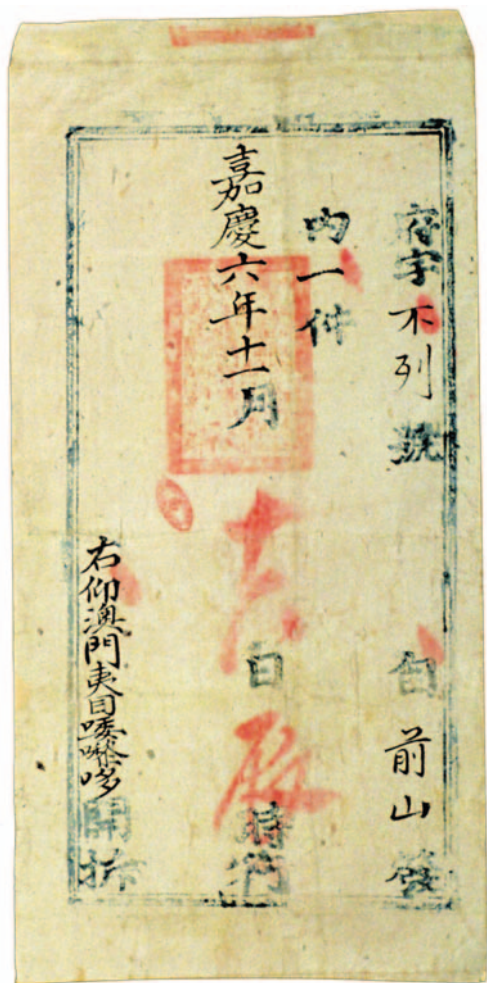 府字不列號　自前山發
内一件
嘉慶六年十一月十六日辰時
右仰澳門夷目唩嚟哆開拆